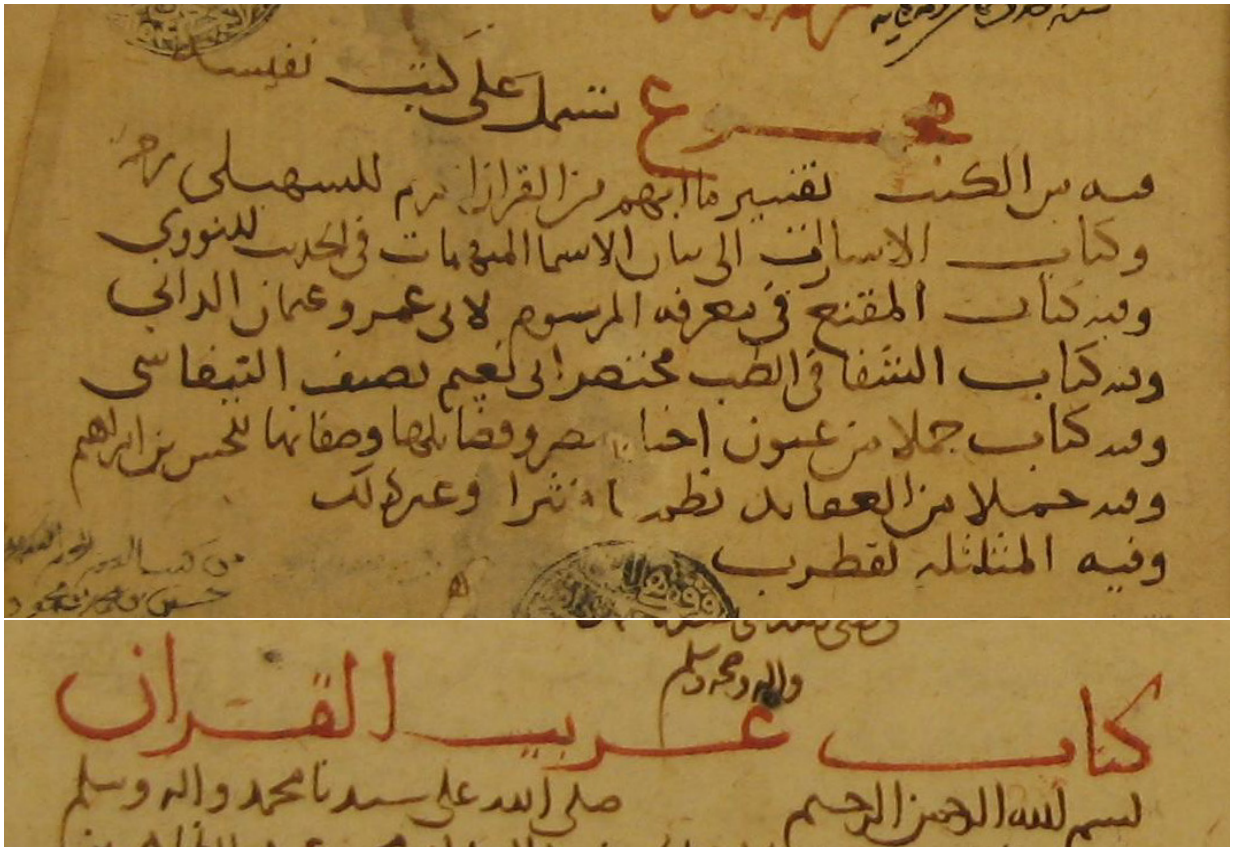 مجموع يشتمل على كتب نفيسة
فيه من الكتب تفسير ما ابهم من القران للسهيلي رحمه
وكتاب الاشارات الى بيان الاسما المبهمات في الحديث للنووي
وفيه كتاب المقنع في معرفة المرسوم لابي عمرو عثمان الداني
وفيه كتاب الشفا في الطب مختصر ابي نعيم تصنيف التيفاشي
وفيه كتاب جملا من عيون اخبار مصر وفضايلها وصفاتها للحسن بن ابراهيم
وفيه جملا من العقايد نظما ونثرا وغير ذلك
وفيه المثلثله لقطرب
واله وصحبه وسلم
كتاب غريب القران
بسم الله الرحمن الرحيم صلى الله على سيدنا محمد واله وسلم